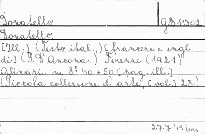 Donatello g B 1302
Donatello
[Ill.] (Testo ital.) (francese e ingl.
di) (P. D'Ancona.) Firenze (1921)
Alinari. m 8° 40 + 50 (pag. ill.)
(Piccola collezione di arte) (vol.) 22.)
27.7